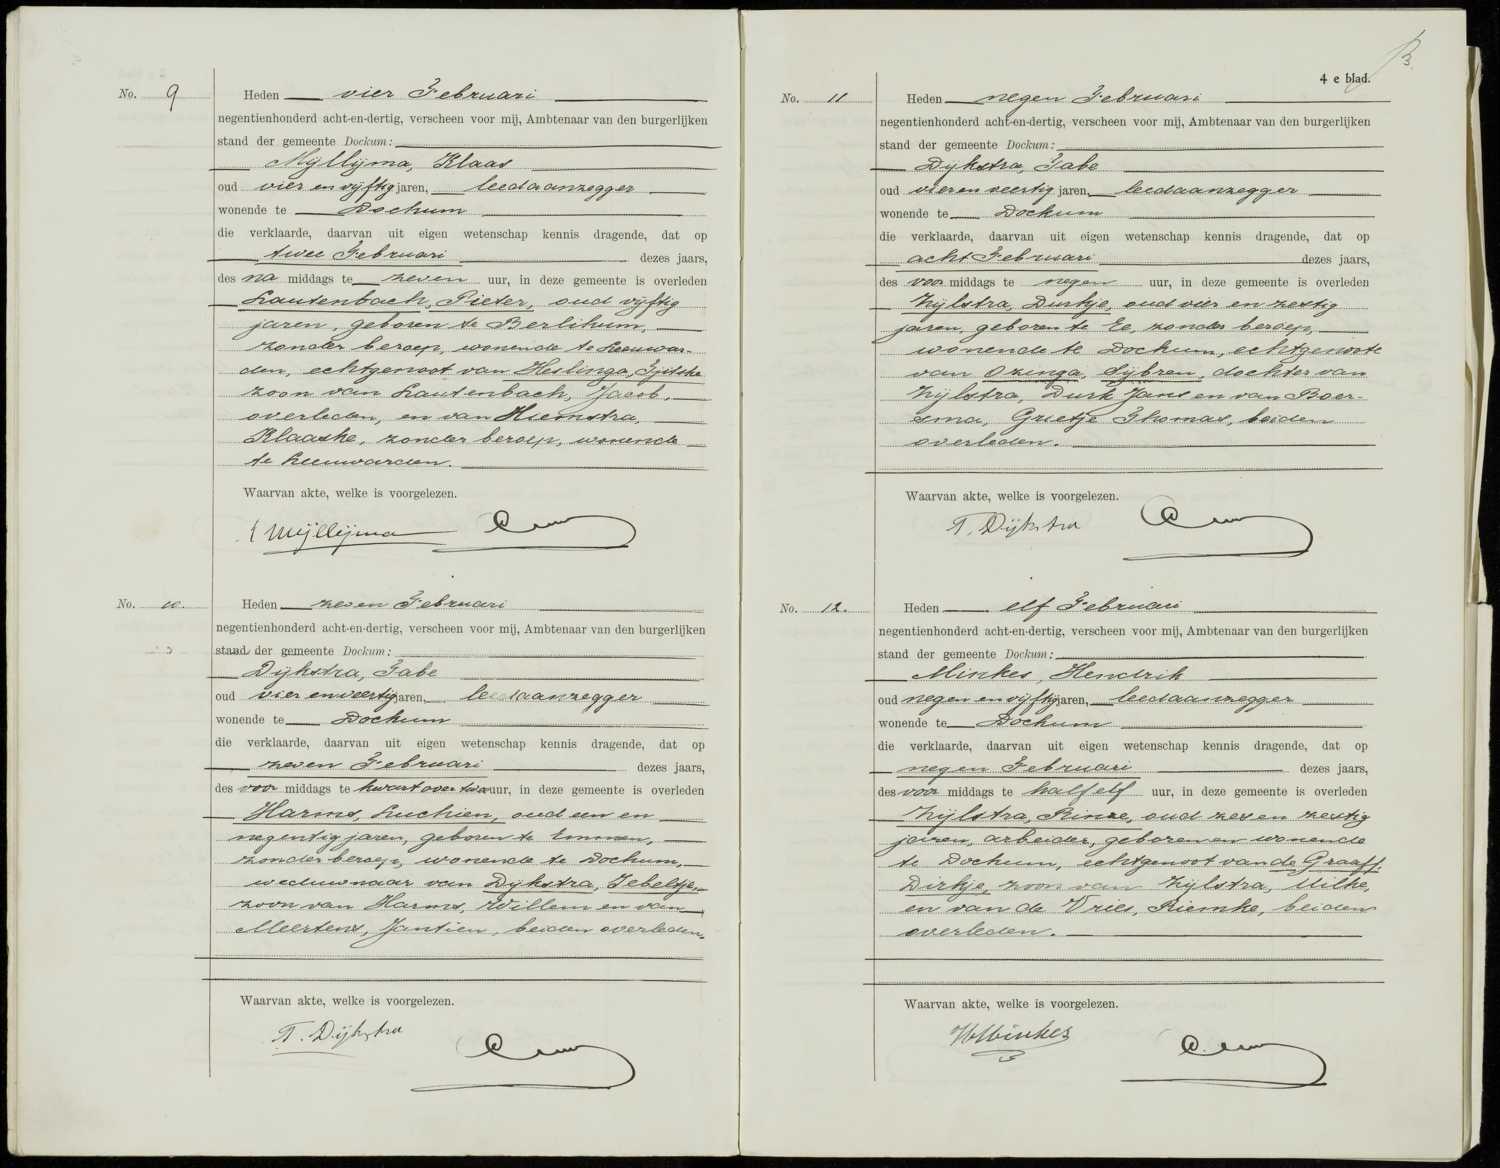 No. 9
Heden vier Februari
negentienhonderd acht-en-dertig, verscheen voor mij, Ambtenaar van den burgerlijken
stand der gemeente Dockum:
Mijllijma, Klaas
oud vier en vijftig jaren, leedaanzegger
wonende te Dockum
die verklaarde, daarvan uit eigen wetenschap kennis dragende, dat op
twee Februari dezes jaars,
des na middags te zeven uur, in deze gemeente is overleden
Lautenbach, Pieter, oud vijftig
jaren, geboren te Berlikum,
zonder beroep, wonende te Leeuwar-
den, echtgenoot van Heslinga, Tjitske
zoon van Lautenbach, Jacob,
overleden, en van Hiemstra,
Klaaske, zonder beroep, wonende
te Leeuwarden.
Waarvan akte, welke is voorgelezen.
Mijllijma
No. 10.
Heden zeven Februari
negentienhonderd acht-en-dertig, verscheen voor mij, Ambtenaar van den burgerlijken
stand der gemeente Dockum:
Dijkstra, Tabe
oud vier en veertig jaren, leedaanzegger
wonende te Dockum
die verklaarde, daarvan uit eigen wetenschap kennis dragende, dat op
zeven Februari dezes jaars,
des voor middags te kwart over twee uur, in deze gemeente is overleden
Harms, Luchien, oud een en
negentig jaren, geboren te Emmen,
zonder beroep, wonende te Dockum,
weduwnaar van Dijkstra, Jebeltje,
zoon van Harms, Willem en van
Meertens, Jantien, beiden overleden.
Waarvan akte, welke is voorgelezen.
T. Dijkstra
4 e blad.
No. 11
Heden negen Februari
negentienhonderd acht-en-dertig, verscheen voor mij, Ambtenaar van den burgerlijken
stand der gemeente Dockum:
Dijkstra, Tabe
oud vier en veertig jaren, leedaanzegger
wonende te Dockum
die verklaarde, daarvan uit eigen wetenschap kennis dragende, dat op
acht Februari dezes jaars,
des voor middags te negen uur, in deze gemeente is overleden
Zijlstra, Durkje, oud vier en zestig
jaren, geboren te Ee, zonder beroep,
wonende te Dockum, echtgenoote
van Ozinga, Sijbren, dochter van
Zijlstra, Durk Jans en van Boer-
sma, Grietje Thomas, beiden
overleden.
Waarvan akte, welke is voorgelezen.
T. Dijkstra
No. 12.
Heden elf Februari
negentienhonderd acht-en-dertig, verscheen voor mij, Ambtenaar van den burgerlijken
stand der gemeente Dockum:
Minkes, Hendrik
oud negen en vijftig jaren, leedaanzegger
wonende te Dockum
die verklaarde, daarvan uit eigen wetenschap kennis dragende, dat op
negen Februari dezes jaars,
des voor middags te half elf uur, in deze gemeente is overleden
Zijlstra, Rinze, oud zes en zestig
jaren, arbeider, geboren en wonende
te Dockum, echtgenoot van de Graaff,
Dirkje, zoon van Zijlstra, Uilke,
en van de Vries, Riemke, beiden
overleden.
Waarvan akte, welke is voorgelezen.
H Minkes